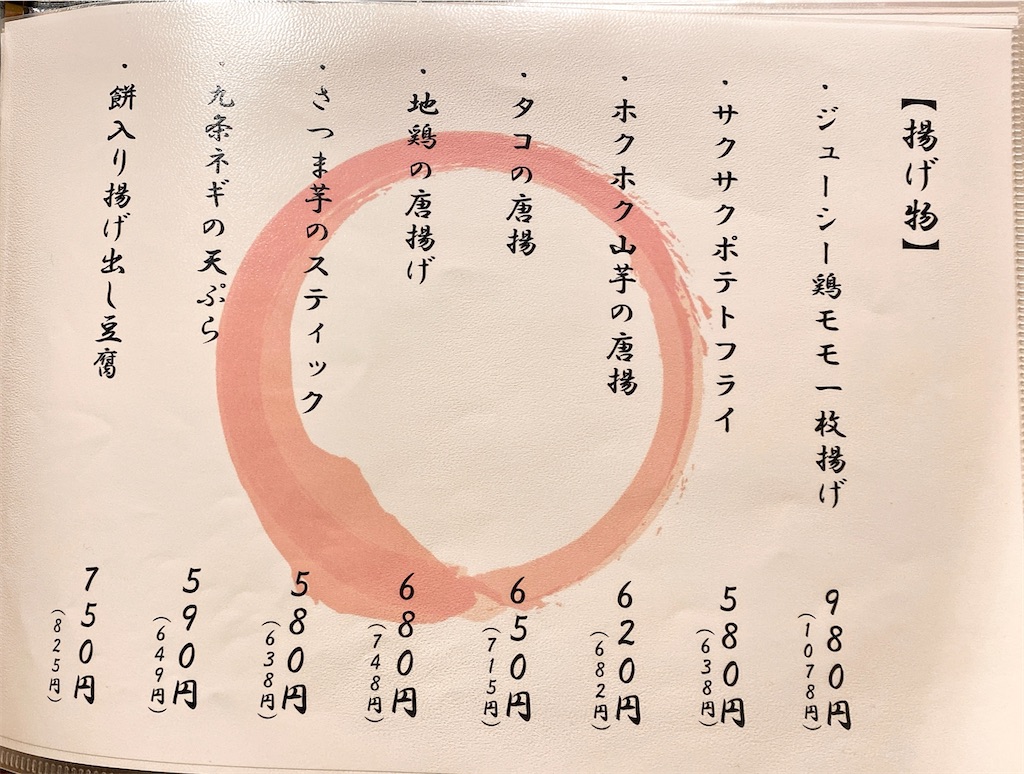 【揚げ物】
・ジューシー鶏モモ一枚揚げ
980円
(1078円)
・サクサクポテトフライ
580円
(638円)
・ホクホク山芋の唐揚
620円
(682円)
・タコの唐揚
650円
(715円)
・地鶏の唐揚げ
680円
(748円)
・さつま芋のスティック
580円
(638円)
・九条ネギの天ぷら
590円
(649円)
・餅入り揚げ出し豆腐
750円
(825円)